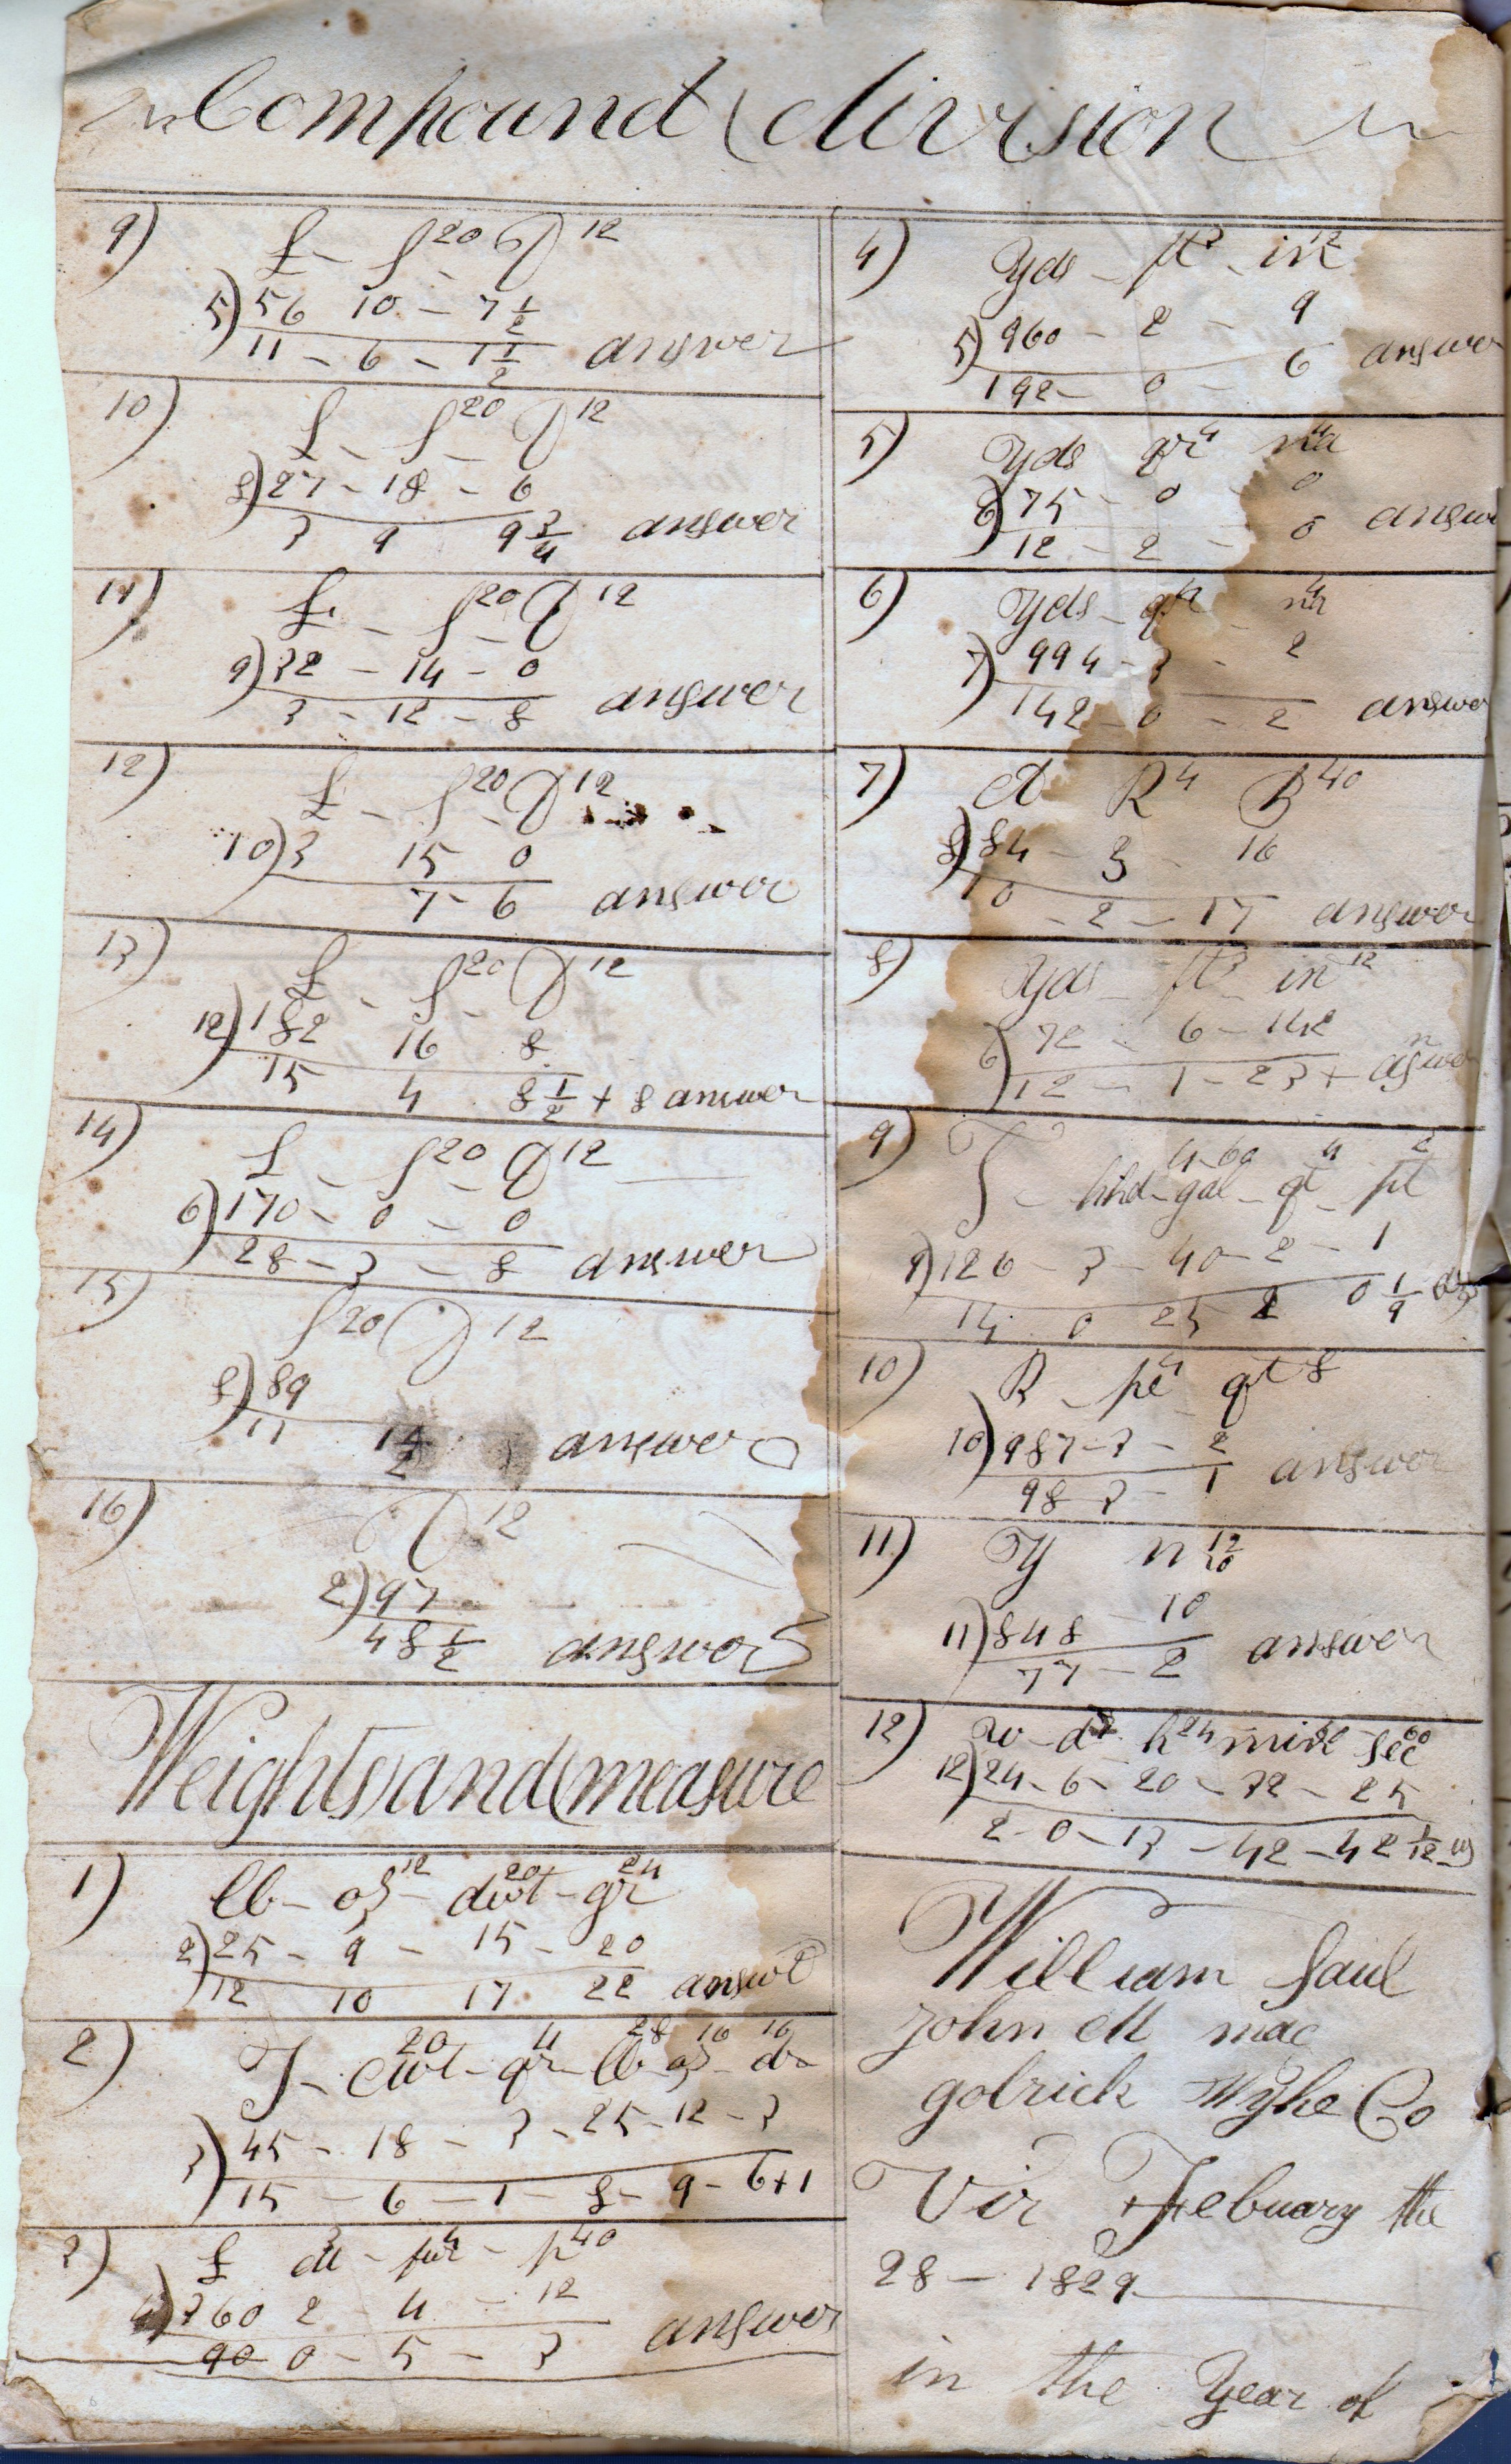 Compound division
9)
£ - S 20 D 12
5) 56 10 - 7 1/2
11 - 6 - 1 1/2 answer
10)
£ - S 20 D 12
8) 27 - 18 - 6
3 9 9 3/4 answer
11)
£ - S 20 D 12
9) 32 - 14 - 0
3 - 12 - 8 answer
12)
£ - S 20 D 12
10) 3 15 0
7 - 6 answer
13)
£ - S 20 D 12
12) 182 16 8
15 4 8 1/2 + 8 answer
14)
£ - S 20 D 12
6) 170 - 0 - 0
28 - 3 - 8 answer
15)
S 20 D 12
8) 89
11 1 1/2 answer
16)
D 12
2) 97
48 1/2 answer
Weights and measure
1)
lb - oz 12 - dwt 20 - gr 24
2) 25 - 9 - 15 - 20
12 10 17 22 answe
2)
T - cwt 20 - qr 4 - lb 28 oz 16 - dr 16
3) 45 - 18 - 3 - 25 - 12 - 3
15 - 6 - 1 - 8 - 9 - 6 + 1
3)
£ M 3 - fur - p 40
4) 360 2 - 4 - 12
90 0 - 5 - 3 answer
4)
Yds - ft 3 - in 12
5) 960 - 2 - 9
192 - 0 - 6 answer
5)
Yds qr 4 na 4
6) 75 - 0 - 0
12 - 2 - 0 answe
6)
Yds - qr 4 - na 4
7) 994 - 3 - 2
142 - 0 - 2 answe
7)
A R 4 P 40
8) 84 - 3 - 16
10 - 2 - 17 answer
8)
Yds - ft 3 - in 12
6) 72 - 6 - 142
12 - 1 - 23 + aswer
9)
T - hhd 4 - gal - qt 4 - pt 2
9) 126 - 3 - 40 - 2 - 1
14 0 25 2 0 1/9
10)
B - pe 4 qt 8
10) 987 - 3 - 2
98 3 - 1 answer
11)
Y m 12
11) 848 - 10
77 - 2 answer
12)
w - d 7 h 24 min sec 60
12) 24 - 6 - 20 - 32 - 25
2 - 0 - 13 - 42 - 42 1/12
William Saul
John M mac
golrick Wythe Co
Vir Febuary the
28 - 1829
in the Year of